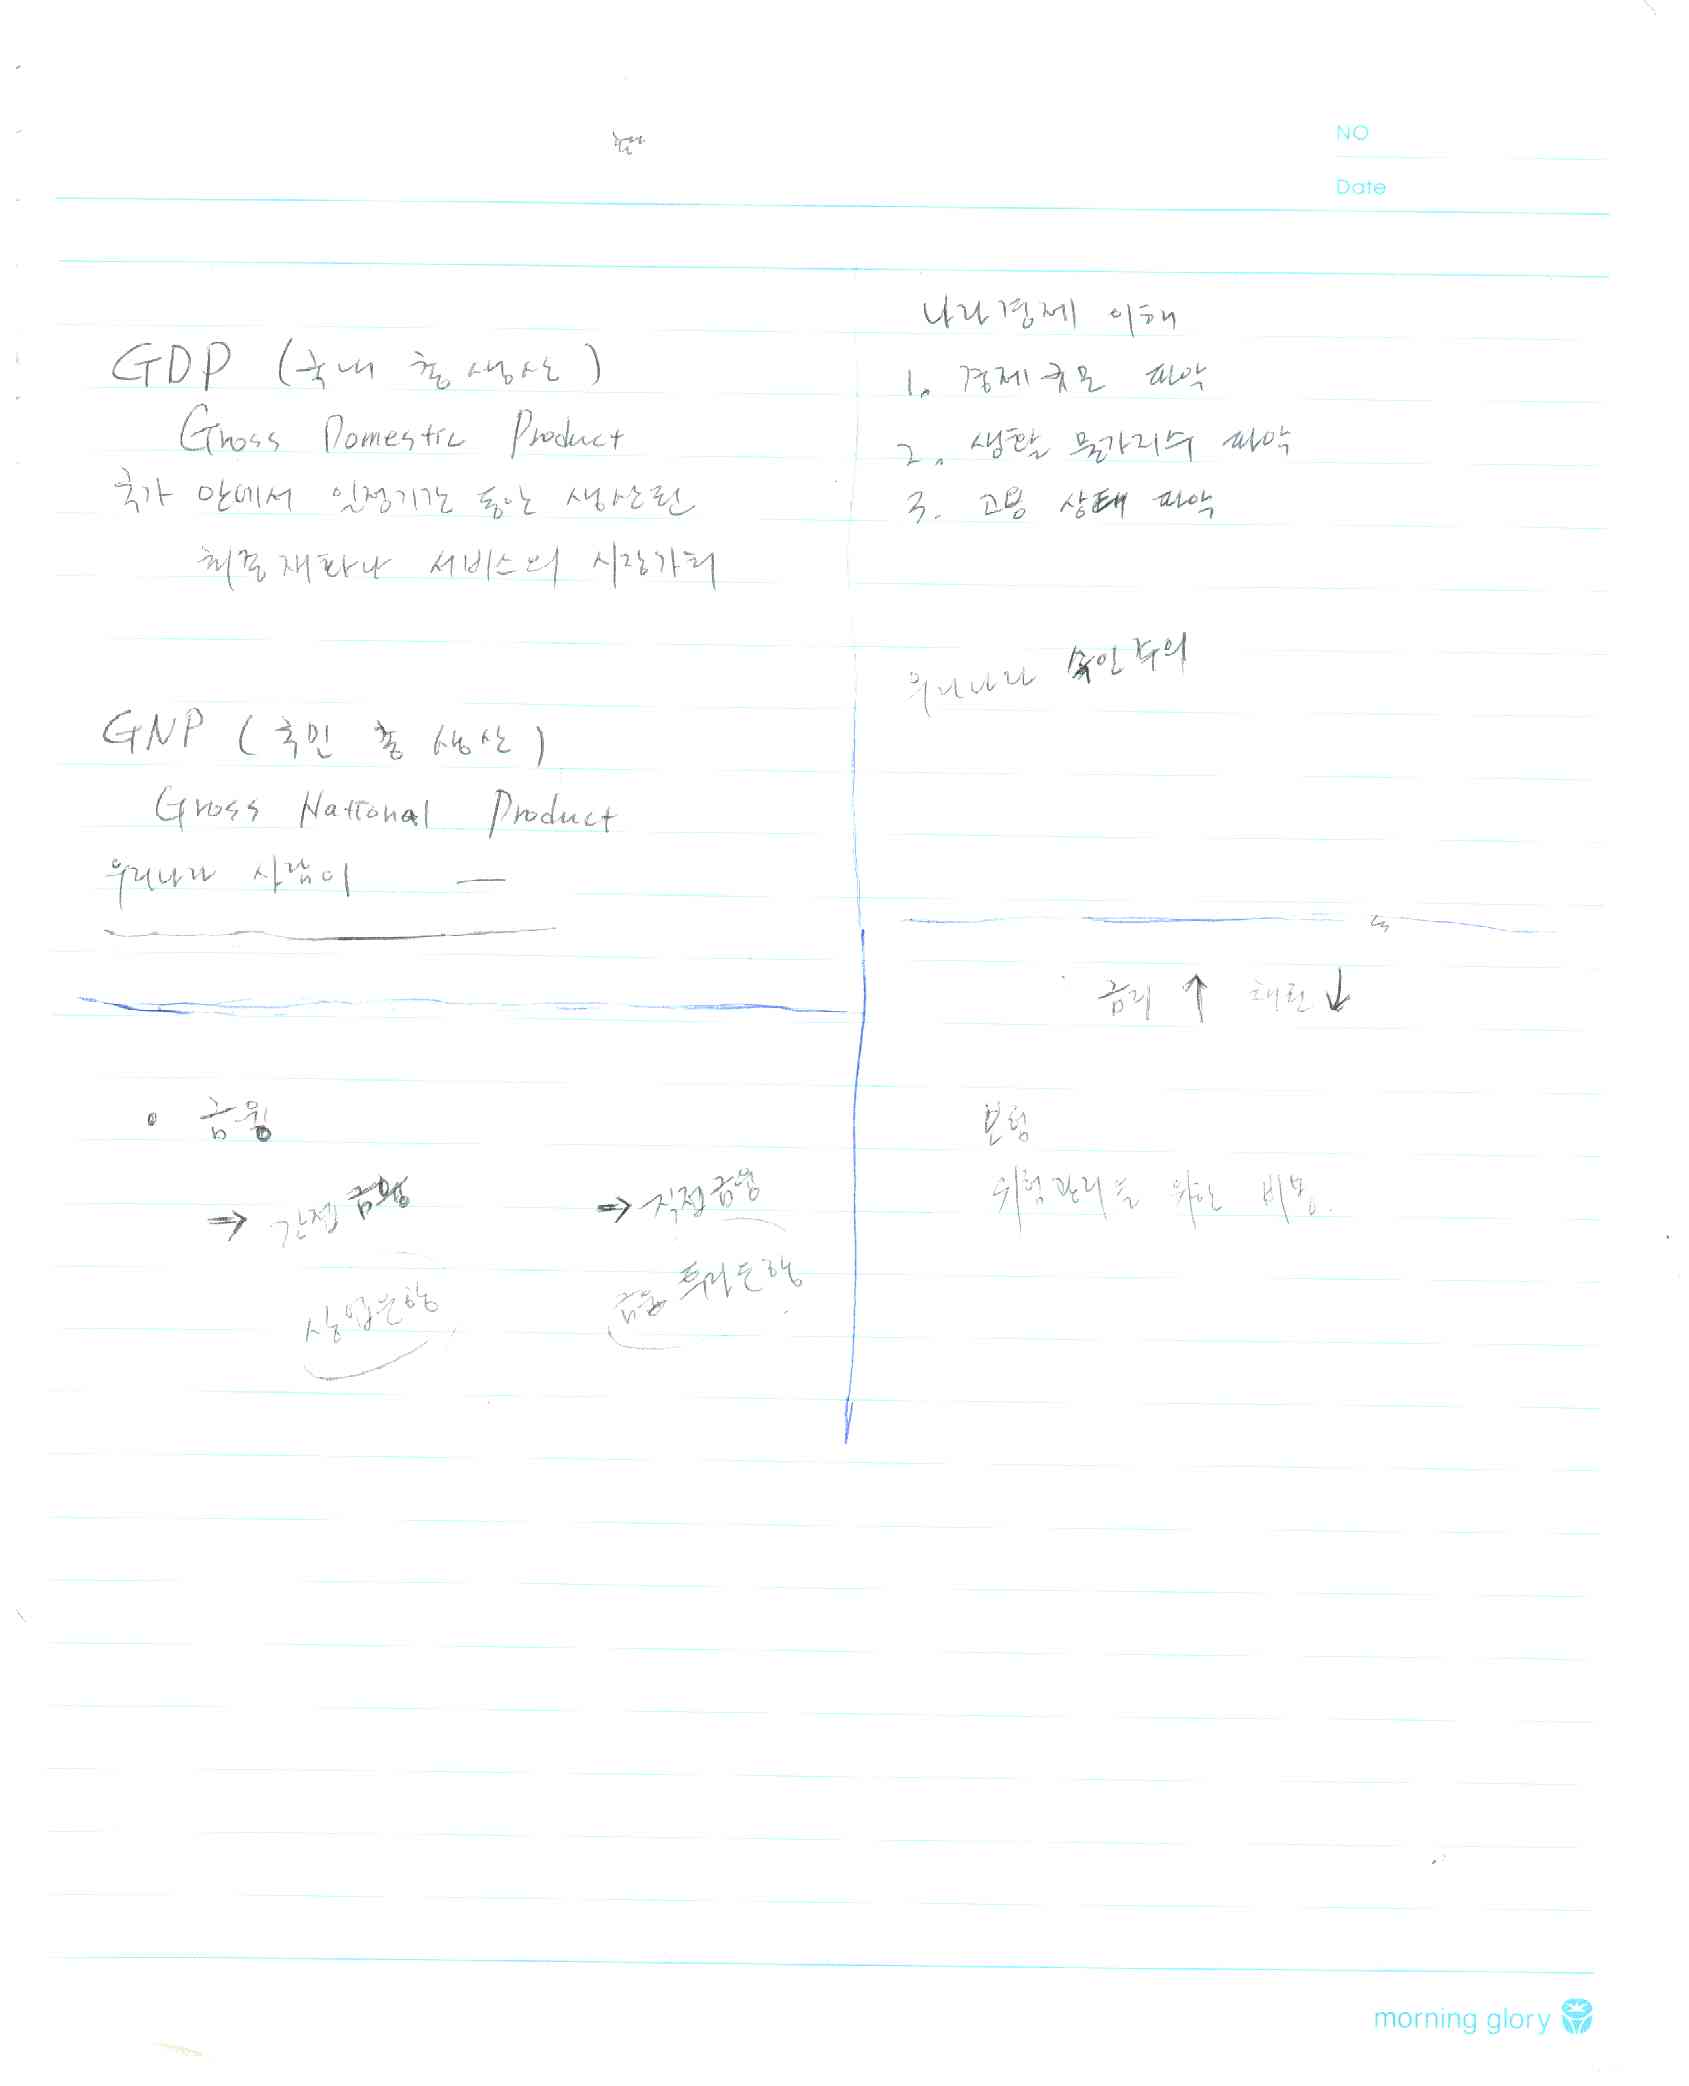 NO
Date
GDP (국내 총 생산)
Gross Domestic Product
국가 안에서 일정기간 동안 생산된
최종재화나 서비스의 시장가치
GNP (국민 총 생산)
Gross National Product
우리나라 사람이 —
• 금융
⇒ 간접 금융
상업은행
⇒ 직접금융
금융 투자은행
나라경제 이해
1. 경제규모 파악
2. 생활 물가지수 파악
3. 고용 상태 파악
우리나라
금리 ↑ 채권 ↓
보험
위험관리를 위한 비용.
morning glory